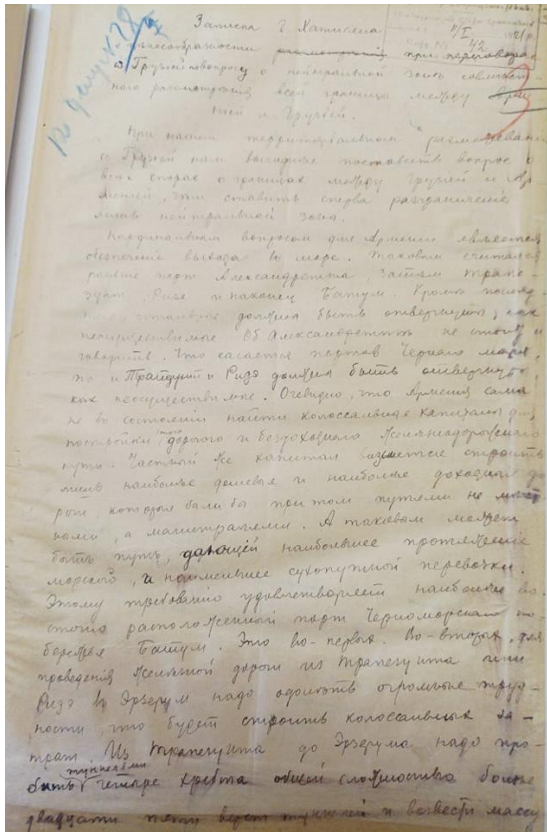 Записка г. Хатисова
о целесообразности при переговорах
с Грузией по вопросу о нейтральной зоне совмест-
ного рассмотрения всей границы между Арме-
нией и Грузией.
При нашем территориальном размежевании
с Грузией нам выгоднее поставить вопрос о
всех спорах о границах между Грузией и Ар-
менией, чем ставить сперва разграничение
лишь нейтральной зоны.
Кардинальным вопросом для Армении является
обеспечение выхода к морю. Таковым считался
раньше порт Александретта, затем Трапе-
зунд, Ризе и наконец Батум. Кроме послед-
него, остальные должны быть отвергнуты, как
неосуществимые. Об Александретте не стоит и
говорить. Что касается портов Черного моря,
то и Трапезунд и Ризе должны быть отвергнуты
как неосуществимые. Очевидно, что Армения сама
не в состоянии найти колоссальные капиталы для
постройки дорогого и бездоходного железнодорожного
пути. Частный же капитал возьмется строить
лишь наиболее дешевые и наиболее доходные до-
роги, которые были бы при том путями не мест-
ными, а магистралями. А таковым может
быть путь, дающий наибольшее протяжение
морской, и наименьшее сухопутной перевозки.
Этому требованию удовлетворяет наиболее во-
сточно расположенный порт Черноморского по-
бережья Батум. Это во-первых. Во-вторых, для
проведения железной дороги из Трапезунта или
Ризе в Эрзерум надо одолеть огромные труд-
ности, что будет стоить колоссальных за-
трат. Из Трапезунта до Эрзерума надо про-
бить туннелями четыре хребта общей сложностью более
двадцати пяти верст туннелей и возвести массу